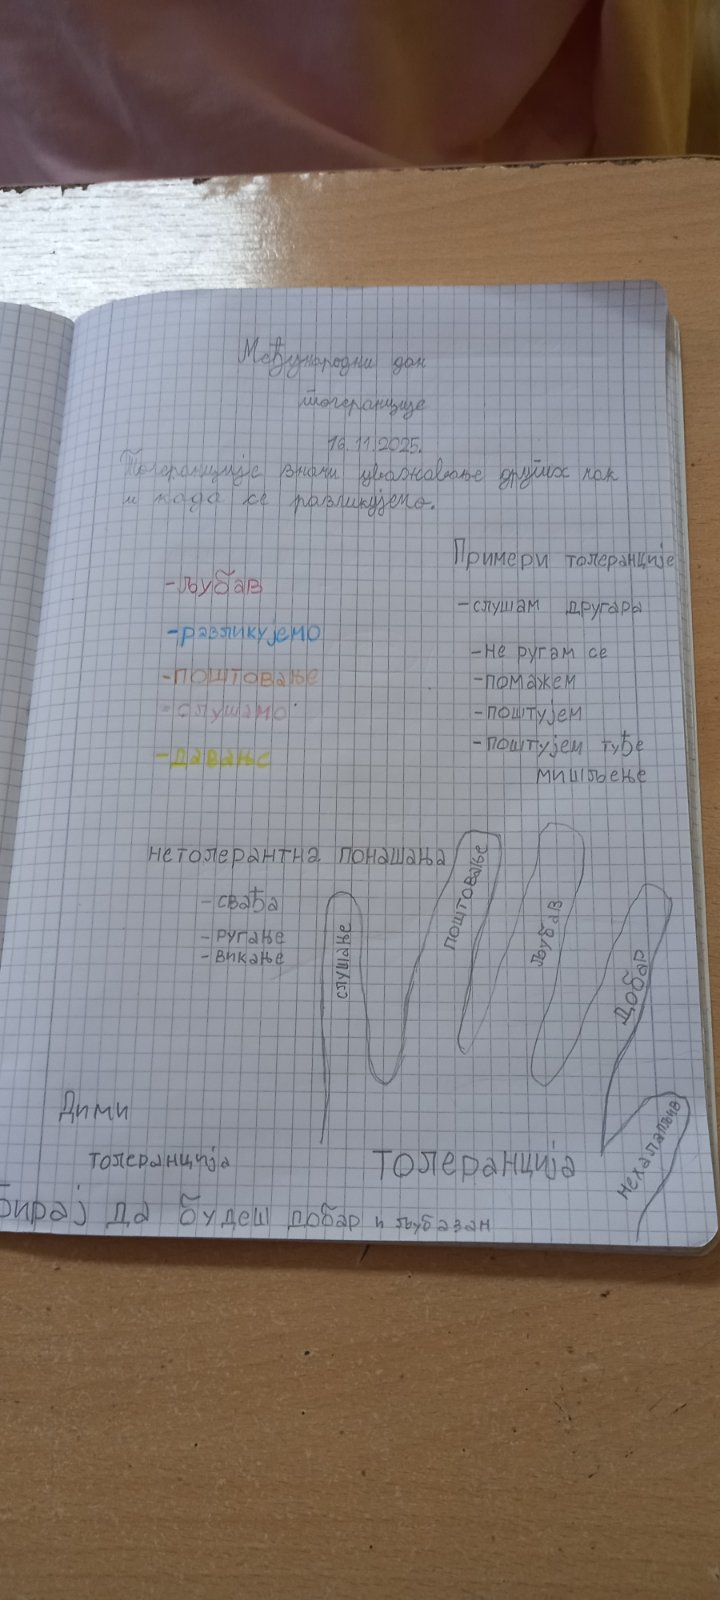 Међународни дан
толеранције
16.11.2025.
Толеранције значи уважавање других чак
и када се разликујемо.
-љубав
-разликујемо
-поштовање
-слушамо
-давање
Примери толеранције
-слушам другара
-не ругам се
-помажем
-поштујем
-поштујем туђе
мишљење
нетолерантна понашања
-свађа
-ругање
-викање
слушање
поштовање
љубав
добар
Дими
толеранција
толеранција
бирај да будеш добар и љубазан